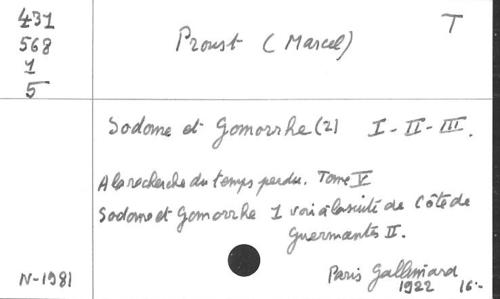 431
568
1
5
Proust (Marcel)
T
Sodome et Gomorrhe (2) I-II-III.
A la recherche du temps perdu. Tome V
Sodome et Gomorrhe 1 voir à la suite de Côté de
Guermantes II.
Paris Gallimard
1922 16.-
N-1981